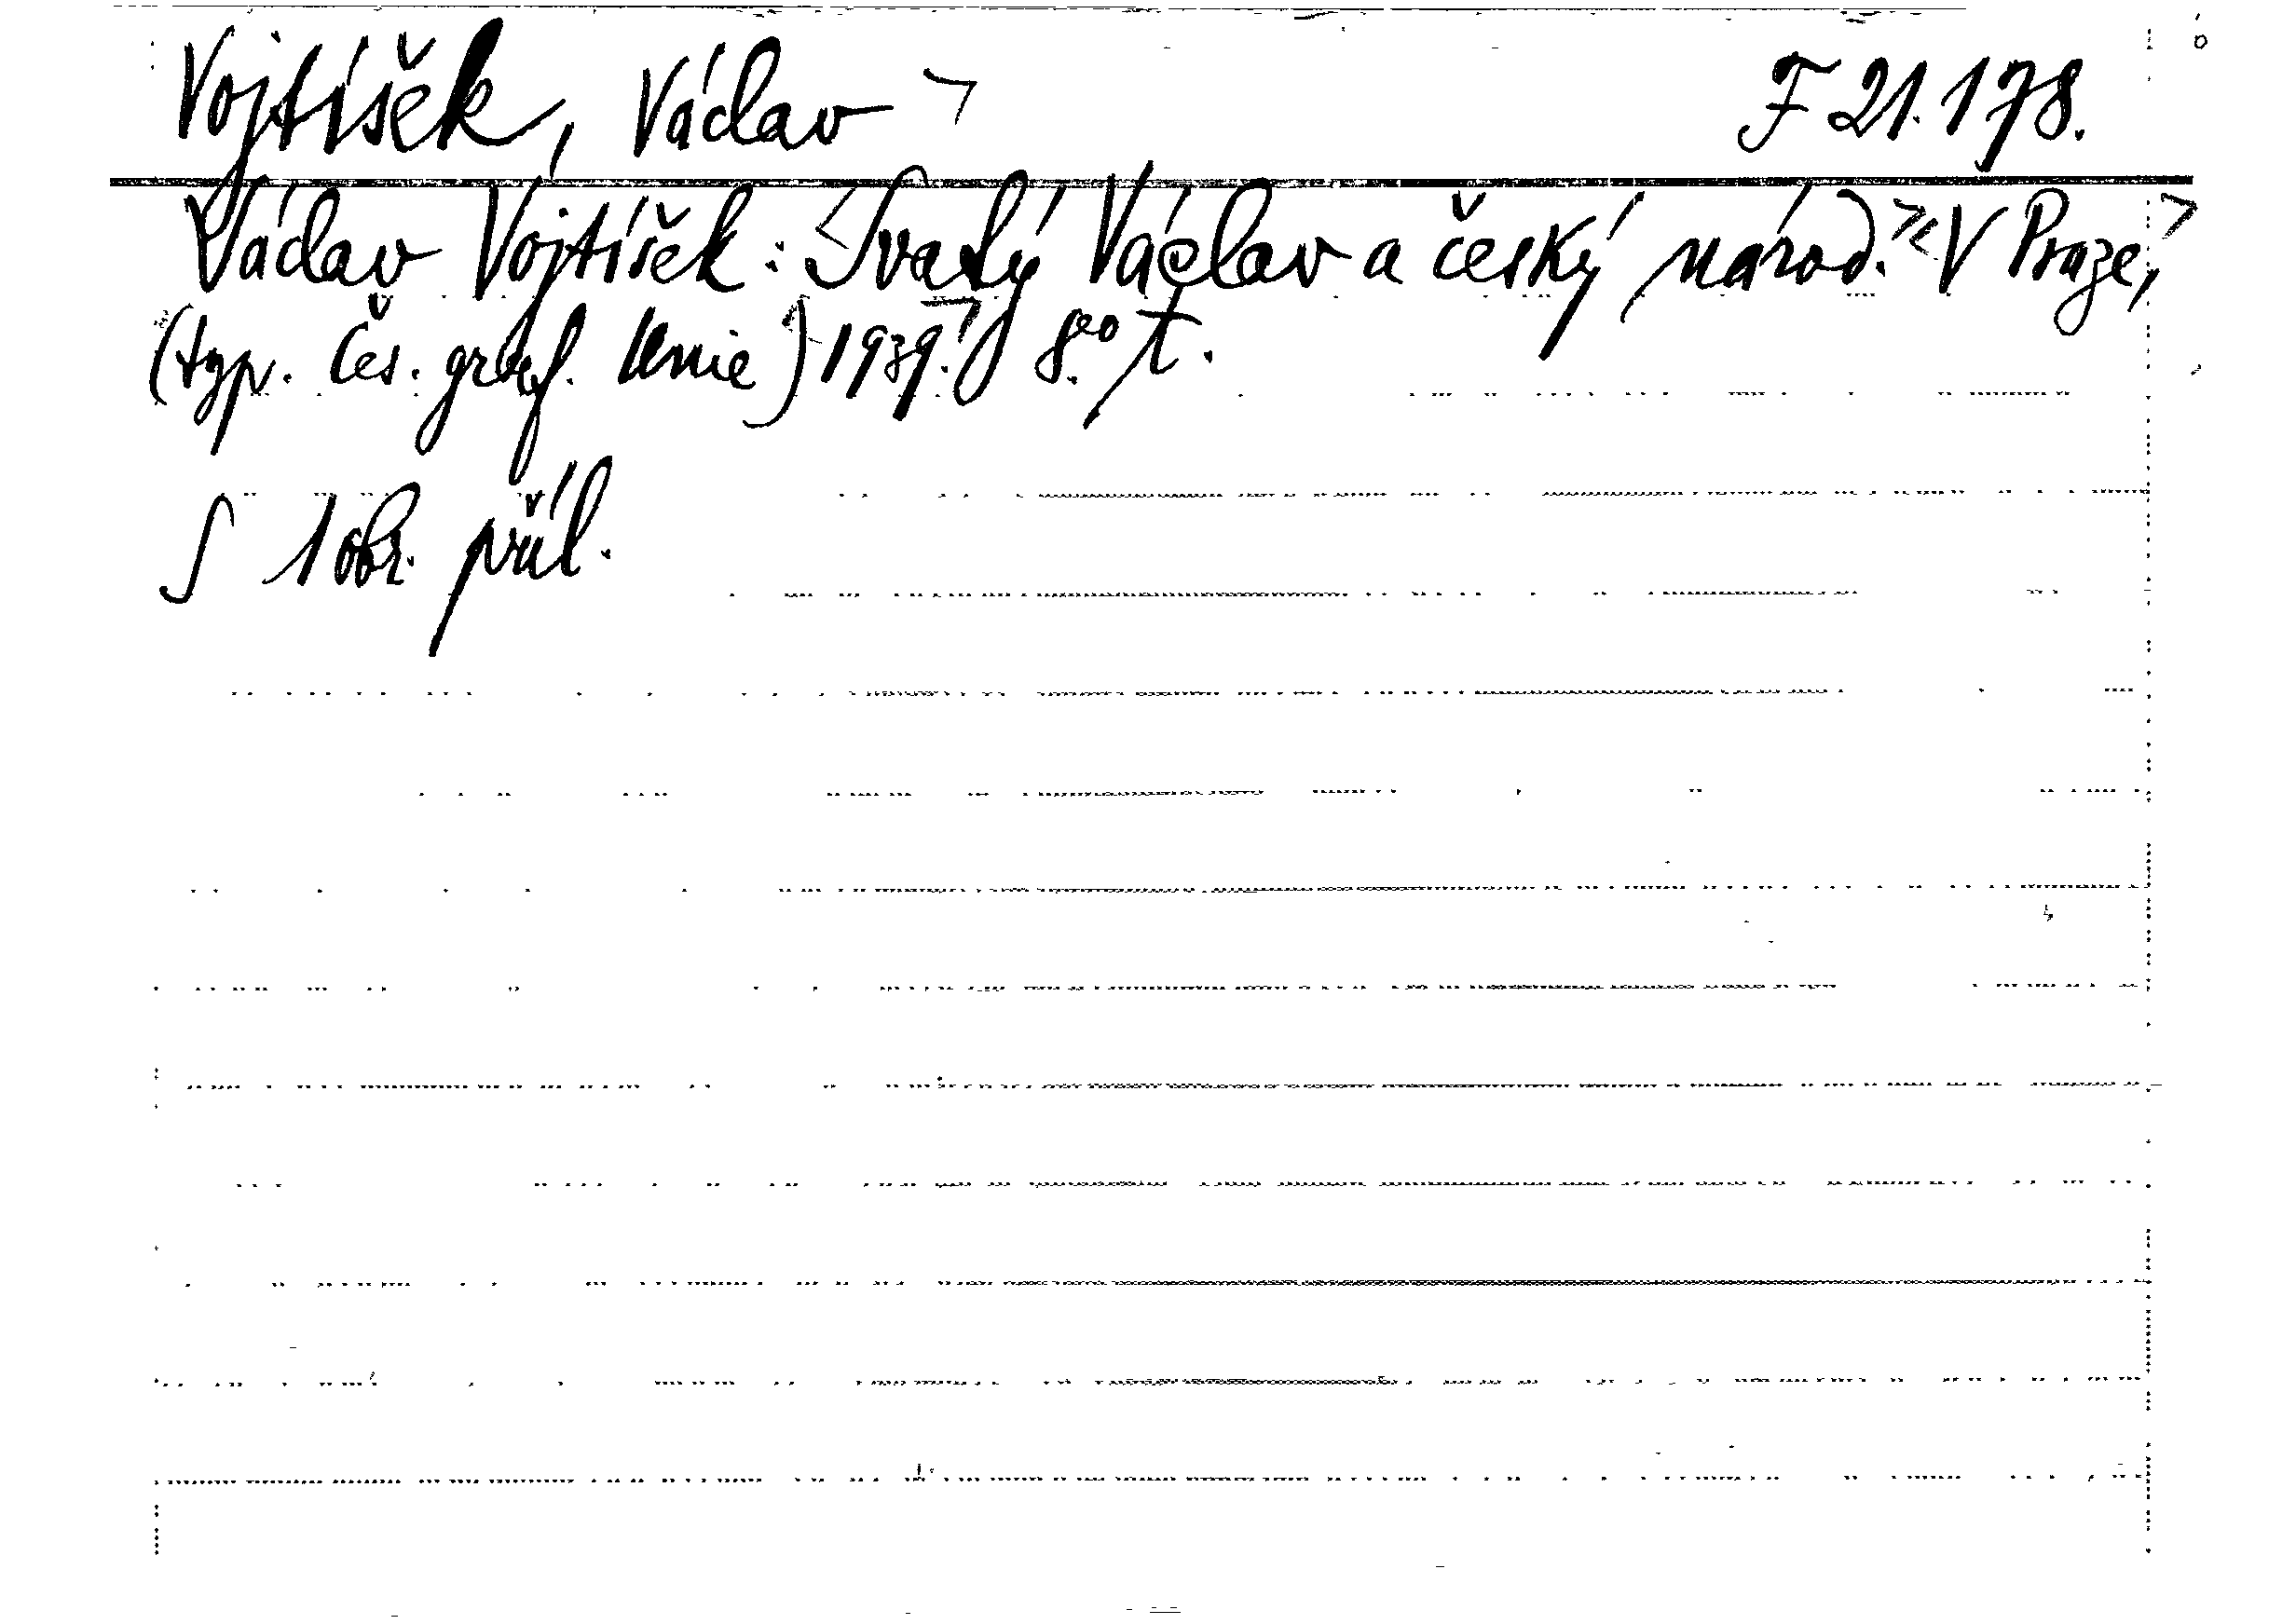 Vojtíšek, Václav F 21.178.
Václav Vojtíšek: Svatý Václav a český národ. V Praze,
(typ. Čes. graf. Unie) 1939. 8° f.
S 1 obr. příl.